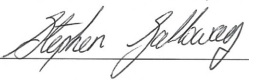 Stephen Galloway